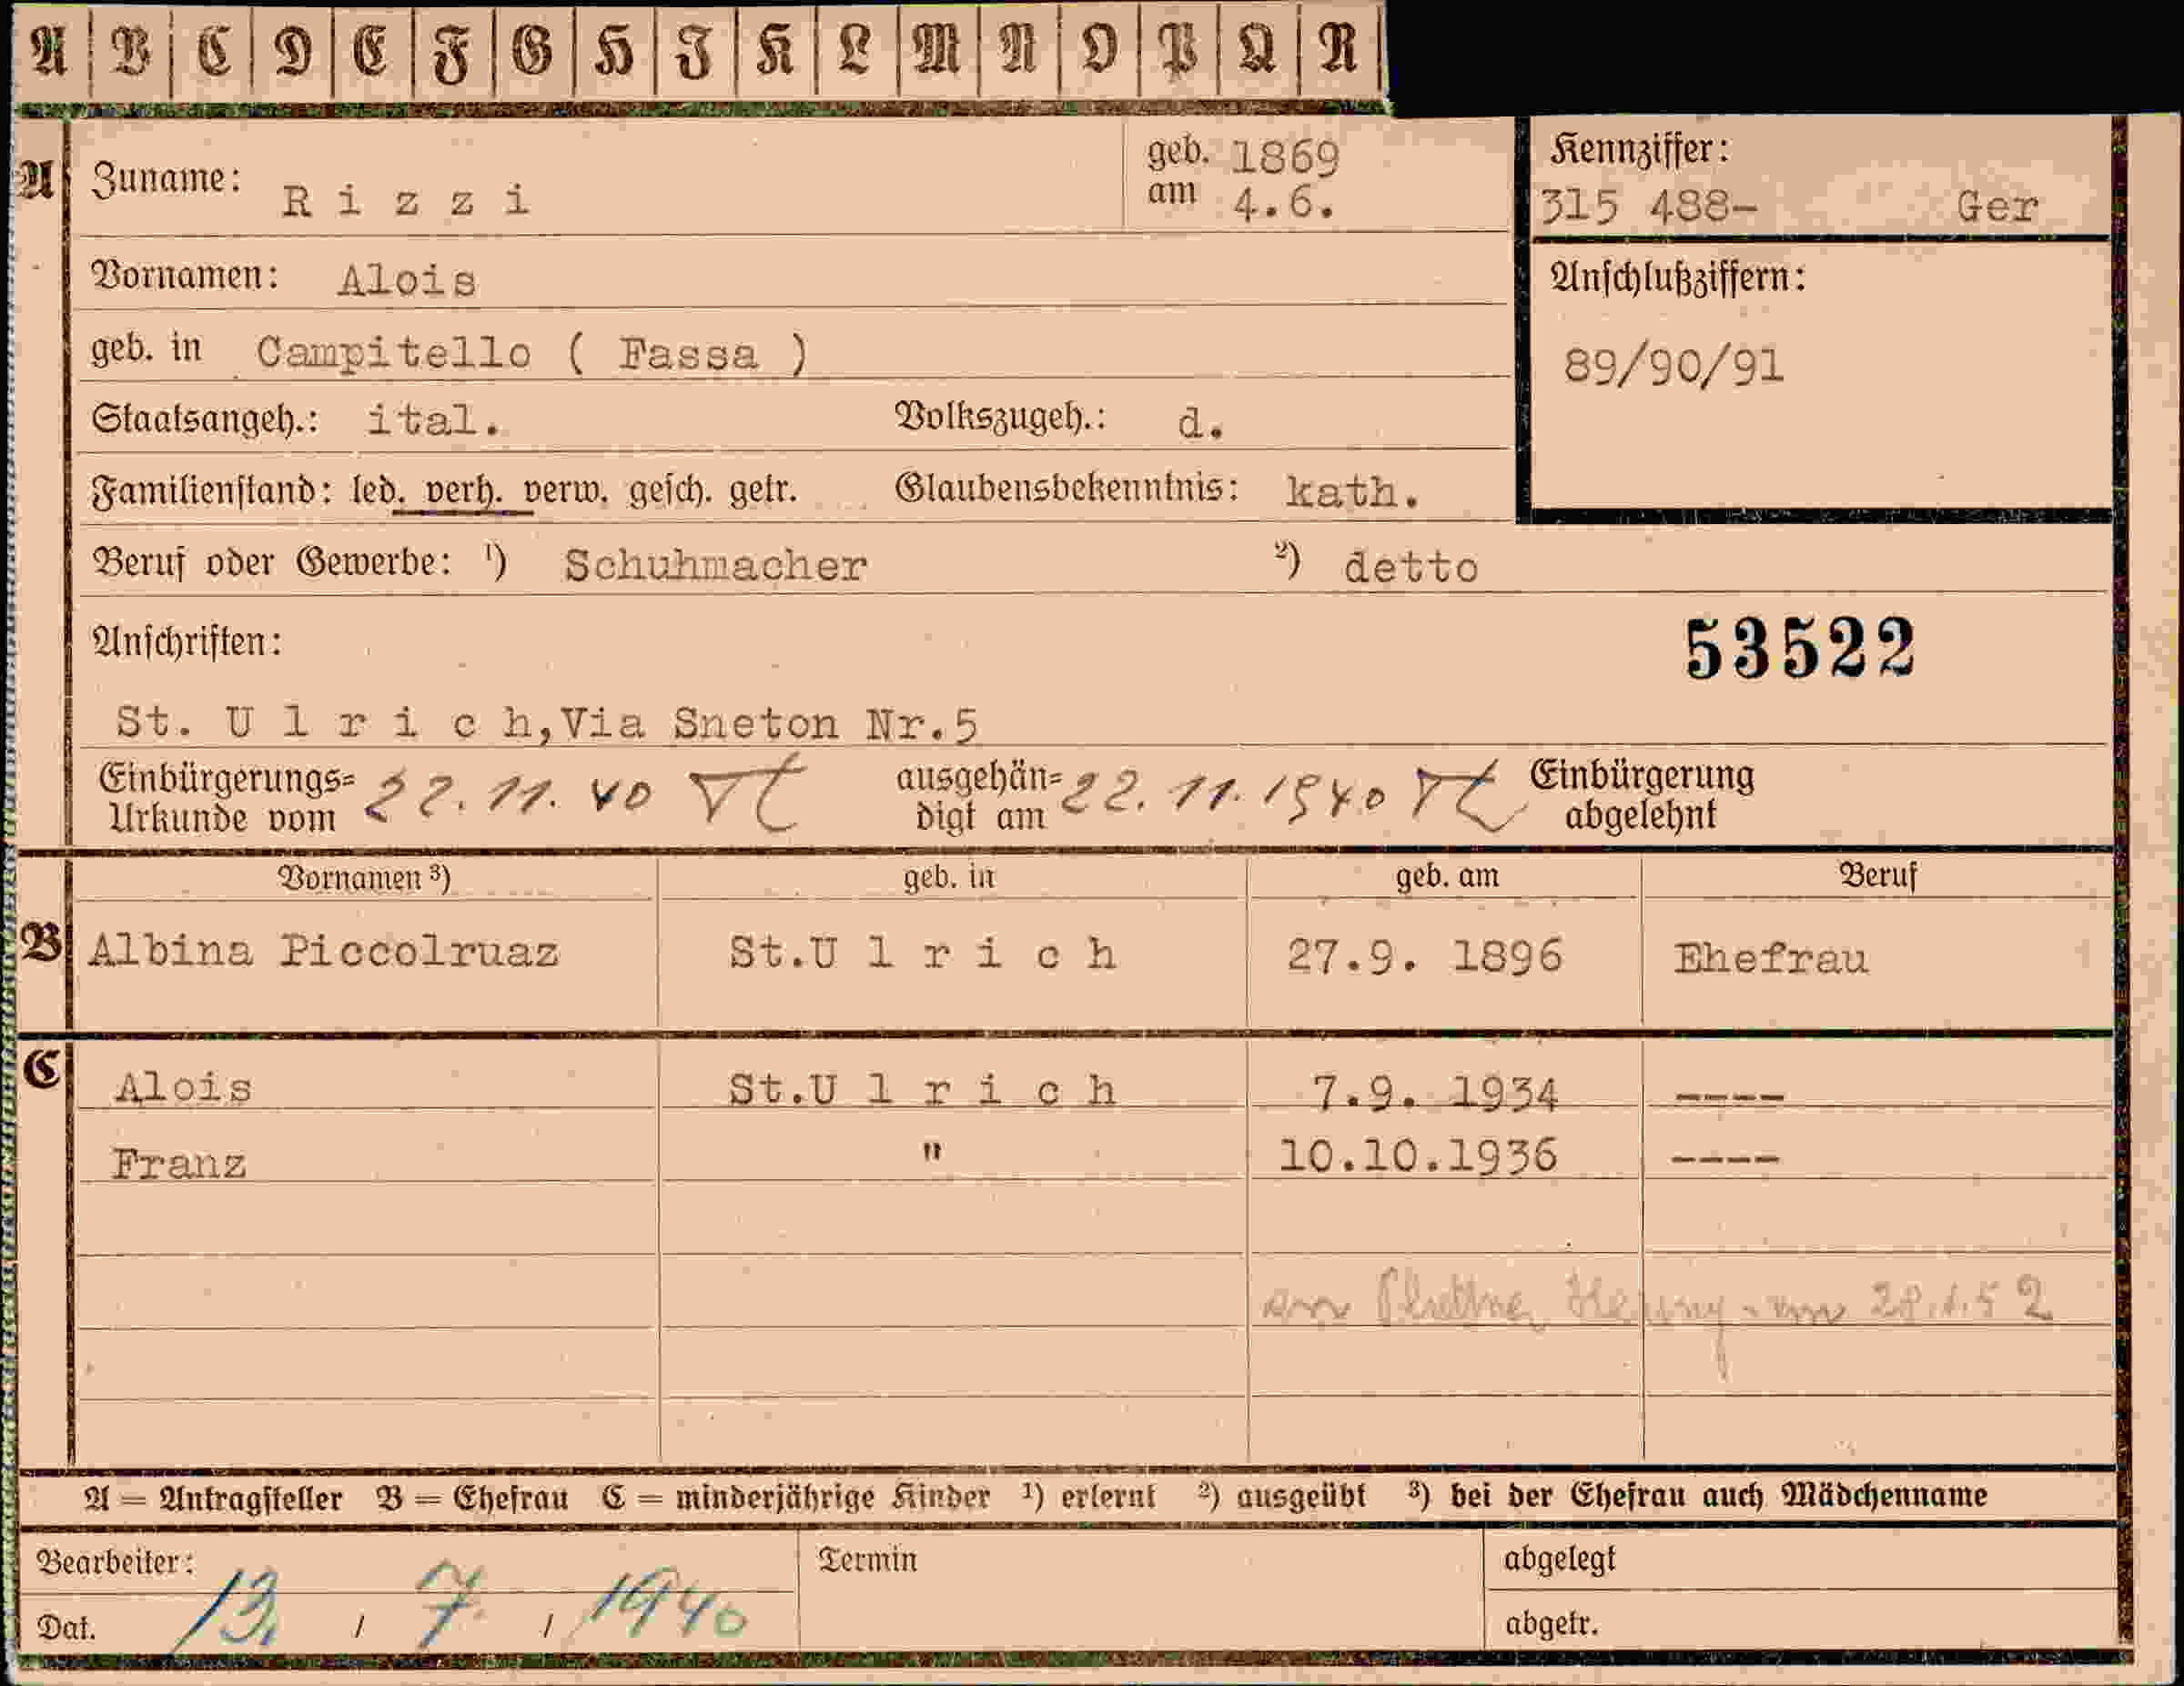 A B C D E F G H J K L M N O P Q R
A Zuname: R i z z i geb. am 1869 4.6. Kennziffer:
315 488- Ger
Vornamen: Alois Anschlußziffern:
geb. in Campitello ( Fassa ) 89/90/91
Staatsangeh.: ital. Volkszugeh.: d.
Familienstand: led. verh. verw. gesch. getr. Glaubensbekenntnis: kath.
Beruf oder Gewerbe: ¹) Schuhmacher ²) detto
Anschriften: 53522
St. U l r i c h, Via Sneton Nr.5
Einbürgerungs= 22.11.40 ausgehän= 22.11.1940 Einbürgerung
Urkunde vom digt am abgelehnt
Vornamen ³) geb. in geb. am Beruf
B Albina Piccolruaz St.U l r i c h 27.9. 1896 Ehefrau
C Alois St.U l r i c h 7.9. 1934 ----
Franz " 10.10.1936 ----
A = Antragsteller B = Ehefrau C = minderjährige Kinder ¹) erlernt ²) ausgeübt ³) bei der Ehefrau auch Mädchenname
Bearbeiter: Termin abgelegt
Dat. 13. / 7. / 1940 abgetr.